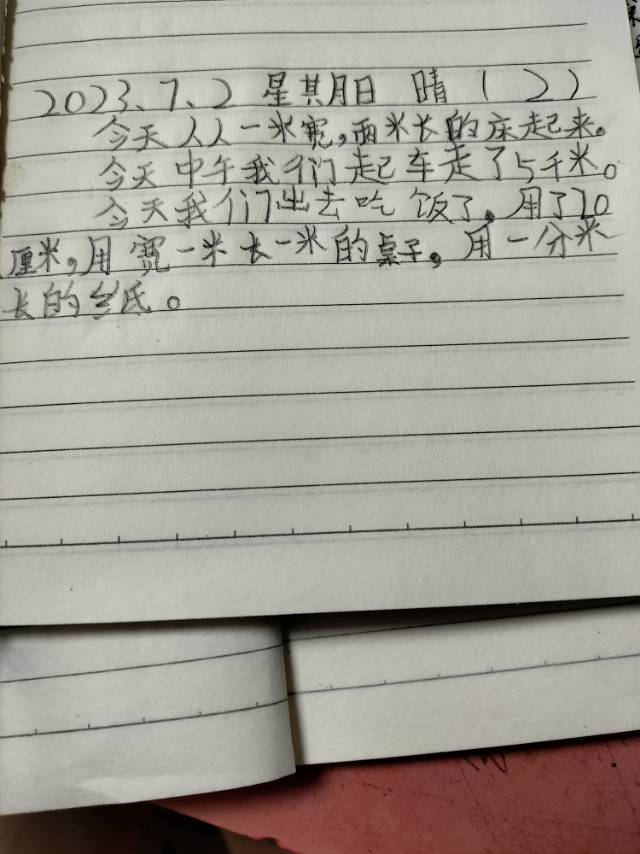 2023、7、2 星其月日 晴(2)
今天人人一米宽,两米长的床起来。
今天中午我们起车走了5千米。
今天我们出去吃饭了,用了20
厘米,用宽一米长一米的桌子,用一分米
长的